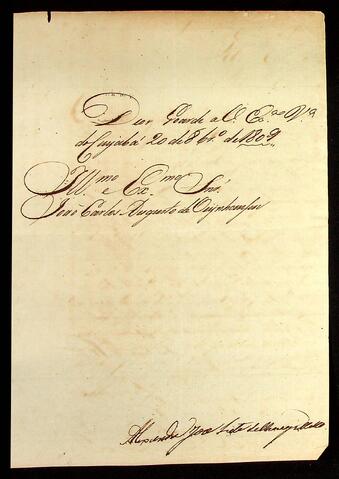 Deos Guarde a V. Exa. Va
de Cuyabá 20 de 8bro de 1809,
Illmo e Exmo Snr.
João Carlos Augusto de Oeynhausen
Alexandre Joze Leite